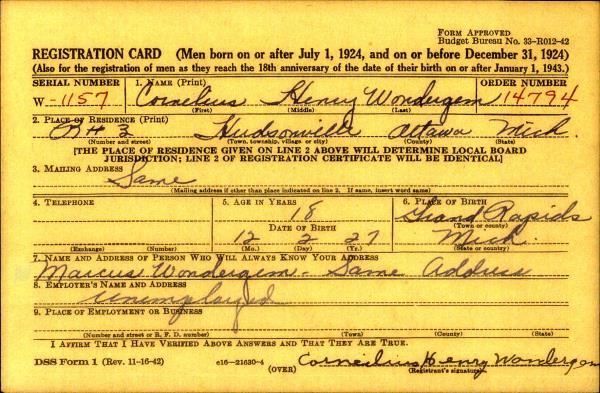 FORM APPROVED
Budget Bureau No. 33-R012-42
REGISTRATION CARD (Men born on or after July 1, 1924, and on or before December 31, 1924)
(Also for the registration of men as they reach the 18th anniversary of the date of their birth on or after January 1, 1943.)
SERIAL NUMBER 1. NAME (Print) ORDER NUMBER
W -1157 Cornelius Henry Wondergem 14794
(First) (Middle) (Last)
2. PLACE OF RESIDENCE (Print)
R# 3 Hudsonville Ottawa Mich.
(Number and street) (Town, township, village, or city) (County) (State)
[THE PLACE OF RESIDENCE GIVEN ON LINE 2 ABOVE WILL DETERMINE LOCAL BOARD
JURISDICTION; LINE 2 OF REGISTRATION CERTIFICATE WILL BE IDENTICAL]
3. MAILING ADDRESS
Same
(Mailing address if other than place indicated on line 2. If same, insert word same)
4. TELEPHONE 5. AGE IN YEARS 6. PLACE OF BIRTH
18 Grand Rapids
DATE OF BIRTH (Town or county)
12 2 27 Mich.
(Exchange) (Number) (Mo.) (Day) (Yr.) (State or country)
7. NAME AND ADDRESS OF PERSON WHO WILL ALWAYS KNOW YOUR ADDRESS
Marcus Wondergem - Same Address
8. EMPLOYER'S NAME AND ADDRESS
Unemployed
9. PLACE OF EMPLOYMENT OR BUSINESS
(Number and street or R. F. D. number) (Town) (County) (State)
I AFFIRM THAT I HAVE VERIFIED ABOVE ANSWERS AND THAT THEY ARE TRUE.
DSS Form 1 (Rev. 11-16-42) e16-21630-4 Cornelius Henry Wondergem
(OVER) (Registrant's signature)